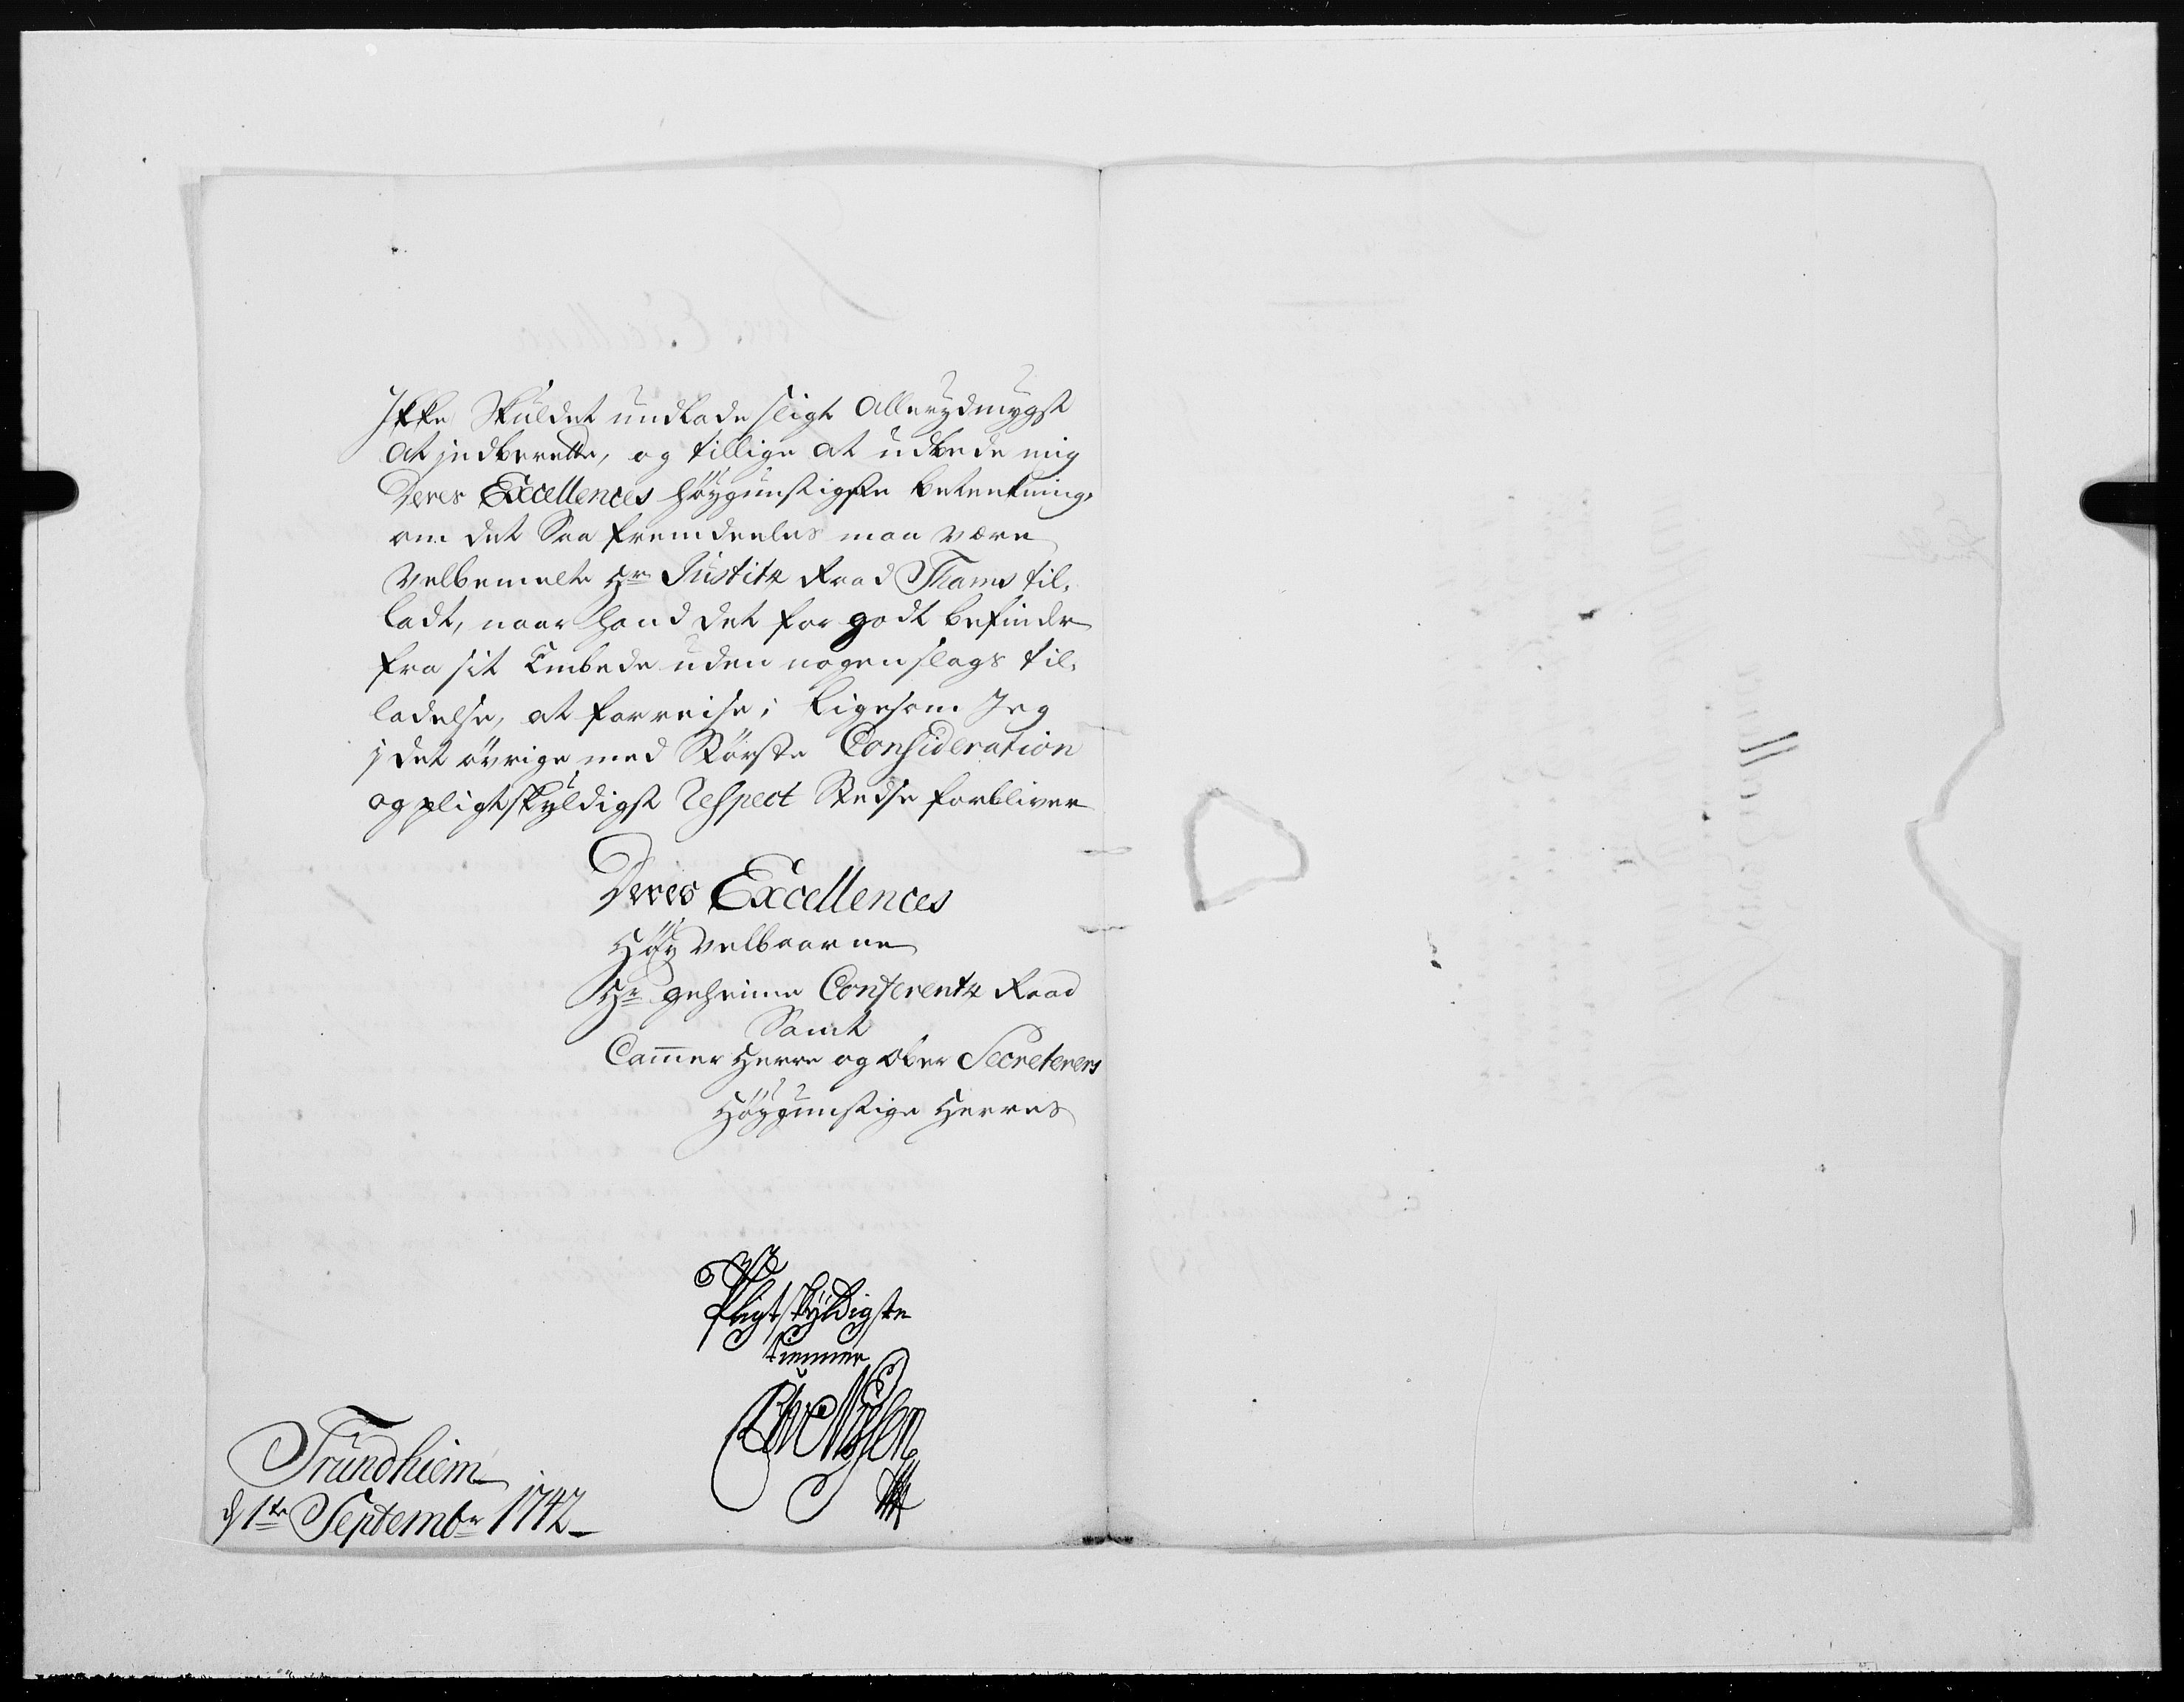 Ikke Skuldet undlade sligt Allerydmygst
at jndberette, og tillige at udbede mig
Deres Excellences höygunstigste betenkning,
om det Saa fremdeeles maa være
Velbemelte Hr Justitz Raad Thams til-
ladt, naar hand det for godt befinder
fra sit Embede uden nogen slags til-
ladelse, at forreise; Ligesom Jeg
j det övrige med Störste Consideration
og pligtskyldigst Respect Stedse forbliver
Deres Excellences
Höy Velbaarne
Hr geheime Conferentz Raad
Samt
Cammer Herre og Ober Secreterers
Höygunstige Herres
Pligtskyldigste
tienner
Trundhiem
d 1te Septembr 1742